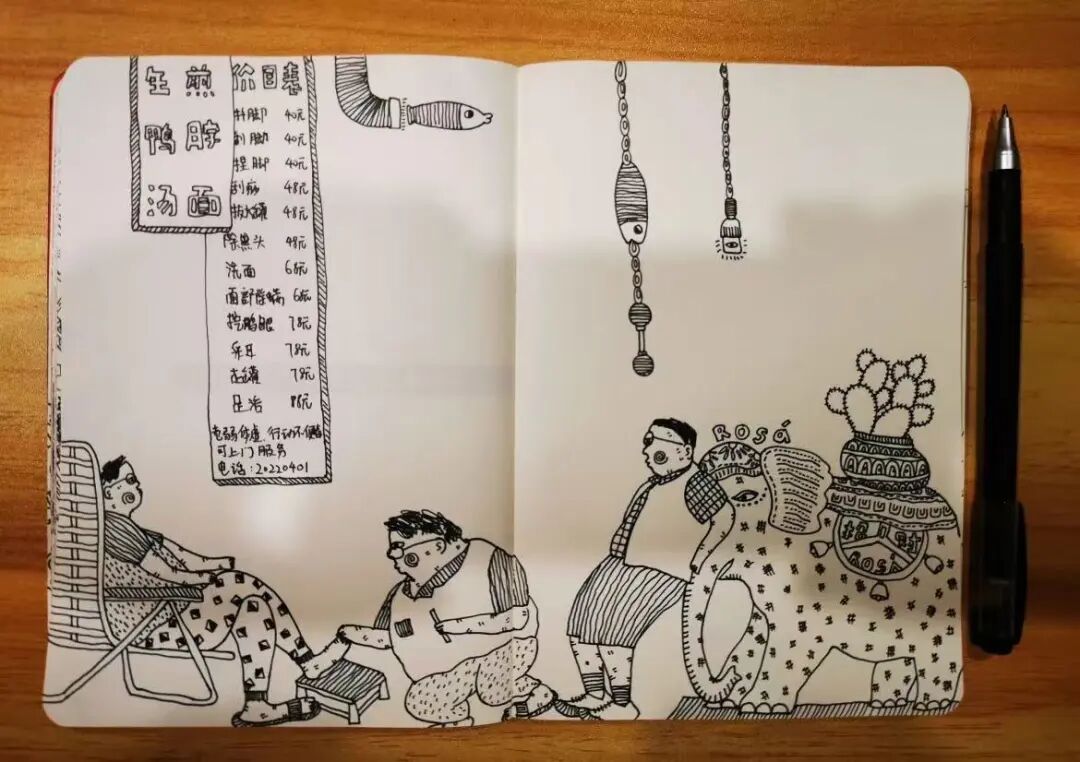 生煎
鸭脖
汤面
价目表
脚 40元
刮脚 40元
捏脚 40元
刮 48元
拔水罐 48元
除黑头 48元
洗面 68元
面部除螨 68元
挖鸡眼 78元
采耳 78元
走罐 78元
88元
老弱体虚,行动不便者
可上门服务
电话:20220401
ROSÁ
招财
ROSÁ